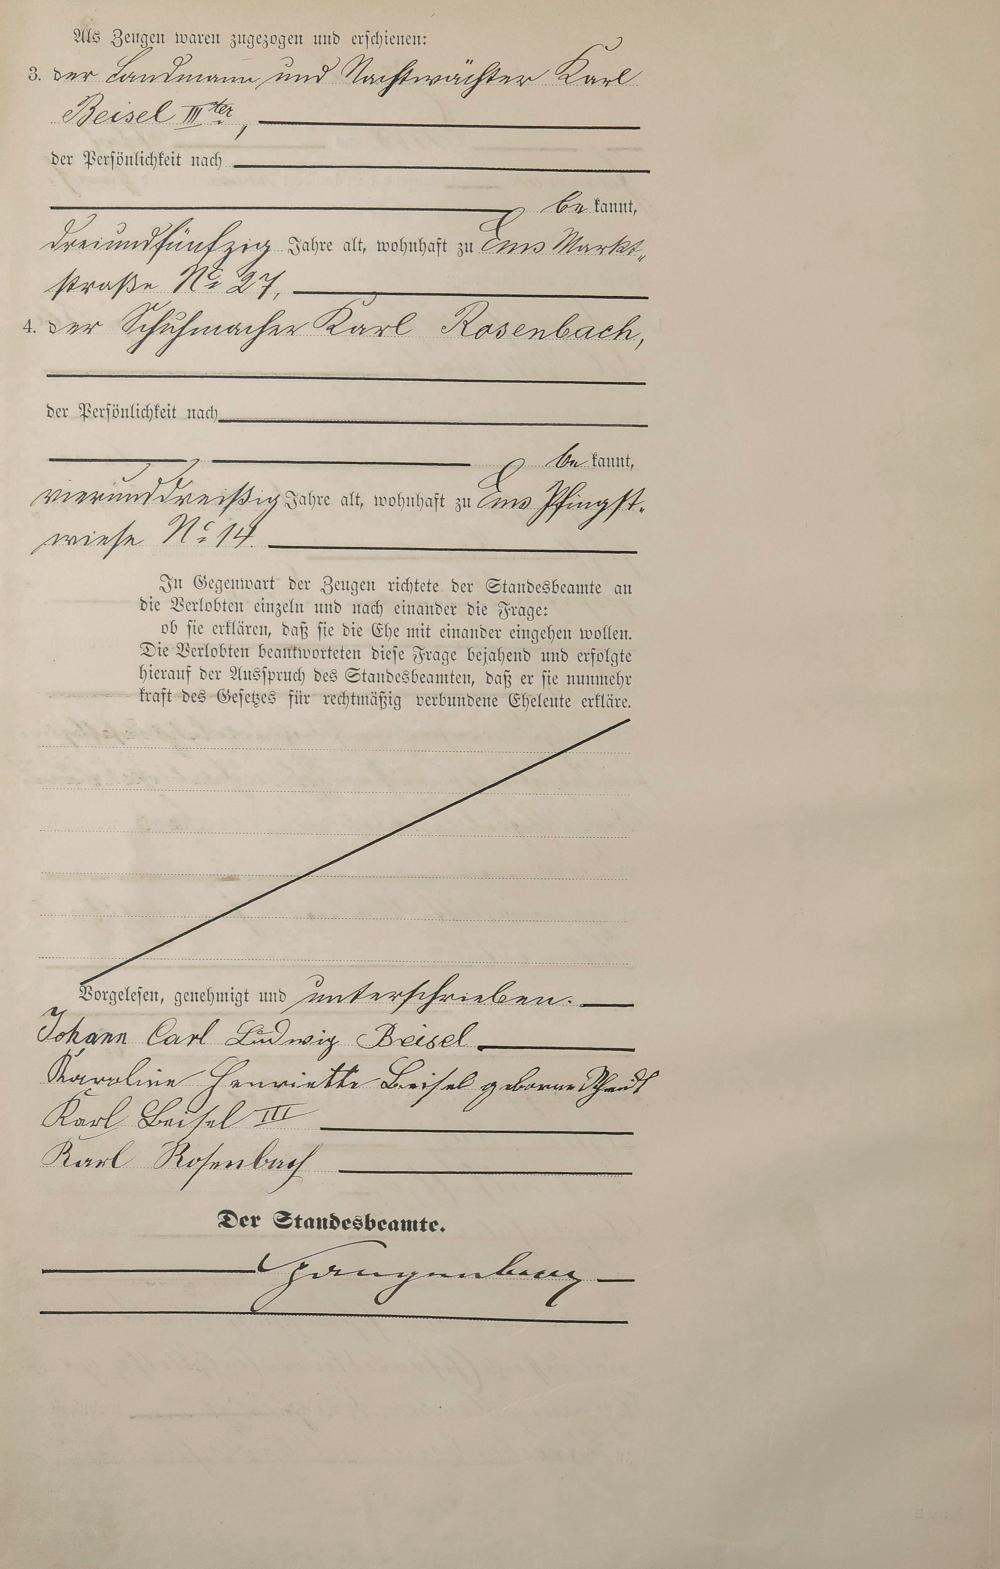 Als Zeugen waren zugezogen und erschienen:
3. der Landmann und Nachtwächter Karl
Beisel IIIter,
der Persönlichkeit nach
be kannt,
dreiundfünfzig Jahre alt, wohnhaft zu Ems Markt-
straße No 27,
4. der Schuhmacher Karl Rosenbach,
der Persönlichkeit nach
be kannt,
vierunddreißig Jahre alt, wohnhaft zu Ems Pfingst-
wiese No 14.
In Gegenwart der Zeugen richtete der Standesbeamte an
die Verlobten einzeln und nach einander die Frage:
ob sie erklären, daß sie die Ehe mit einander eingehen wollen.
Die Verlobten beantworteten diese Frage bejahend und erfolgte
hierauf der Ausspruch des Standesbeamten, daß er sie nunmehr
kraft des Gesetzes für rechtmäßig verbundene Eheleute erkläre.
Vorgelesen, genehmigt und unterschrieben.
Johann Carl Ludwig Beisel
Karoline Henriette Beisel geborne
Karl Beisel III
Karl Rosenbach
Der Standesbeamte.
Spangenberg